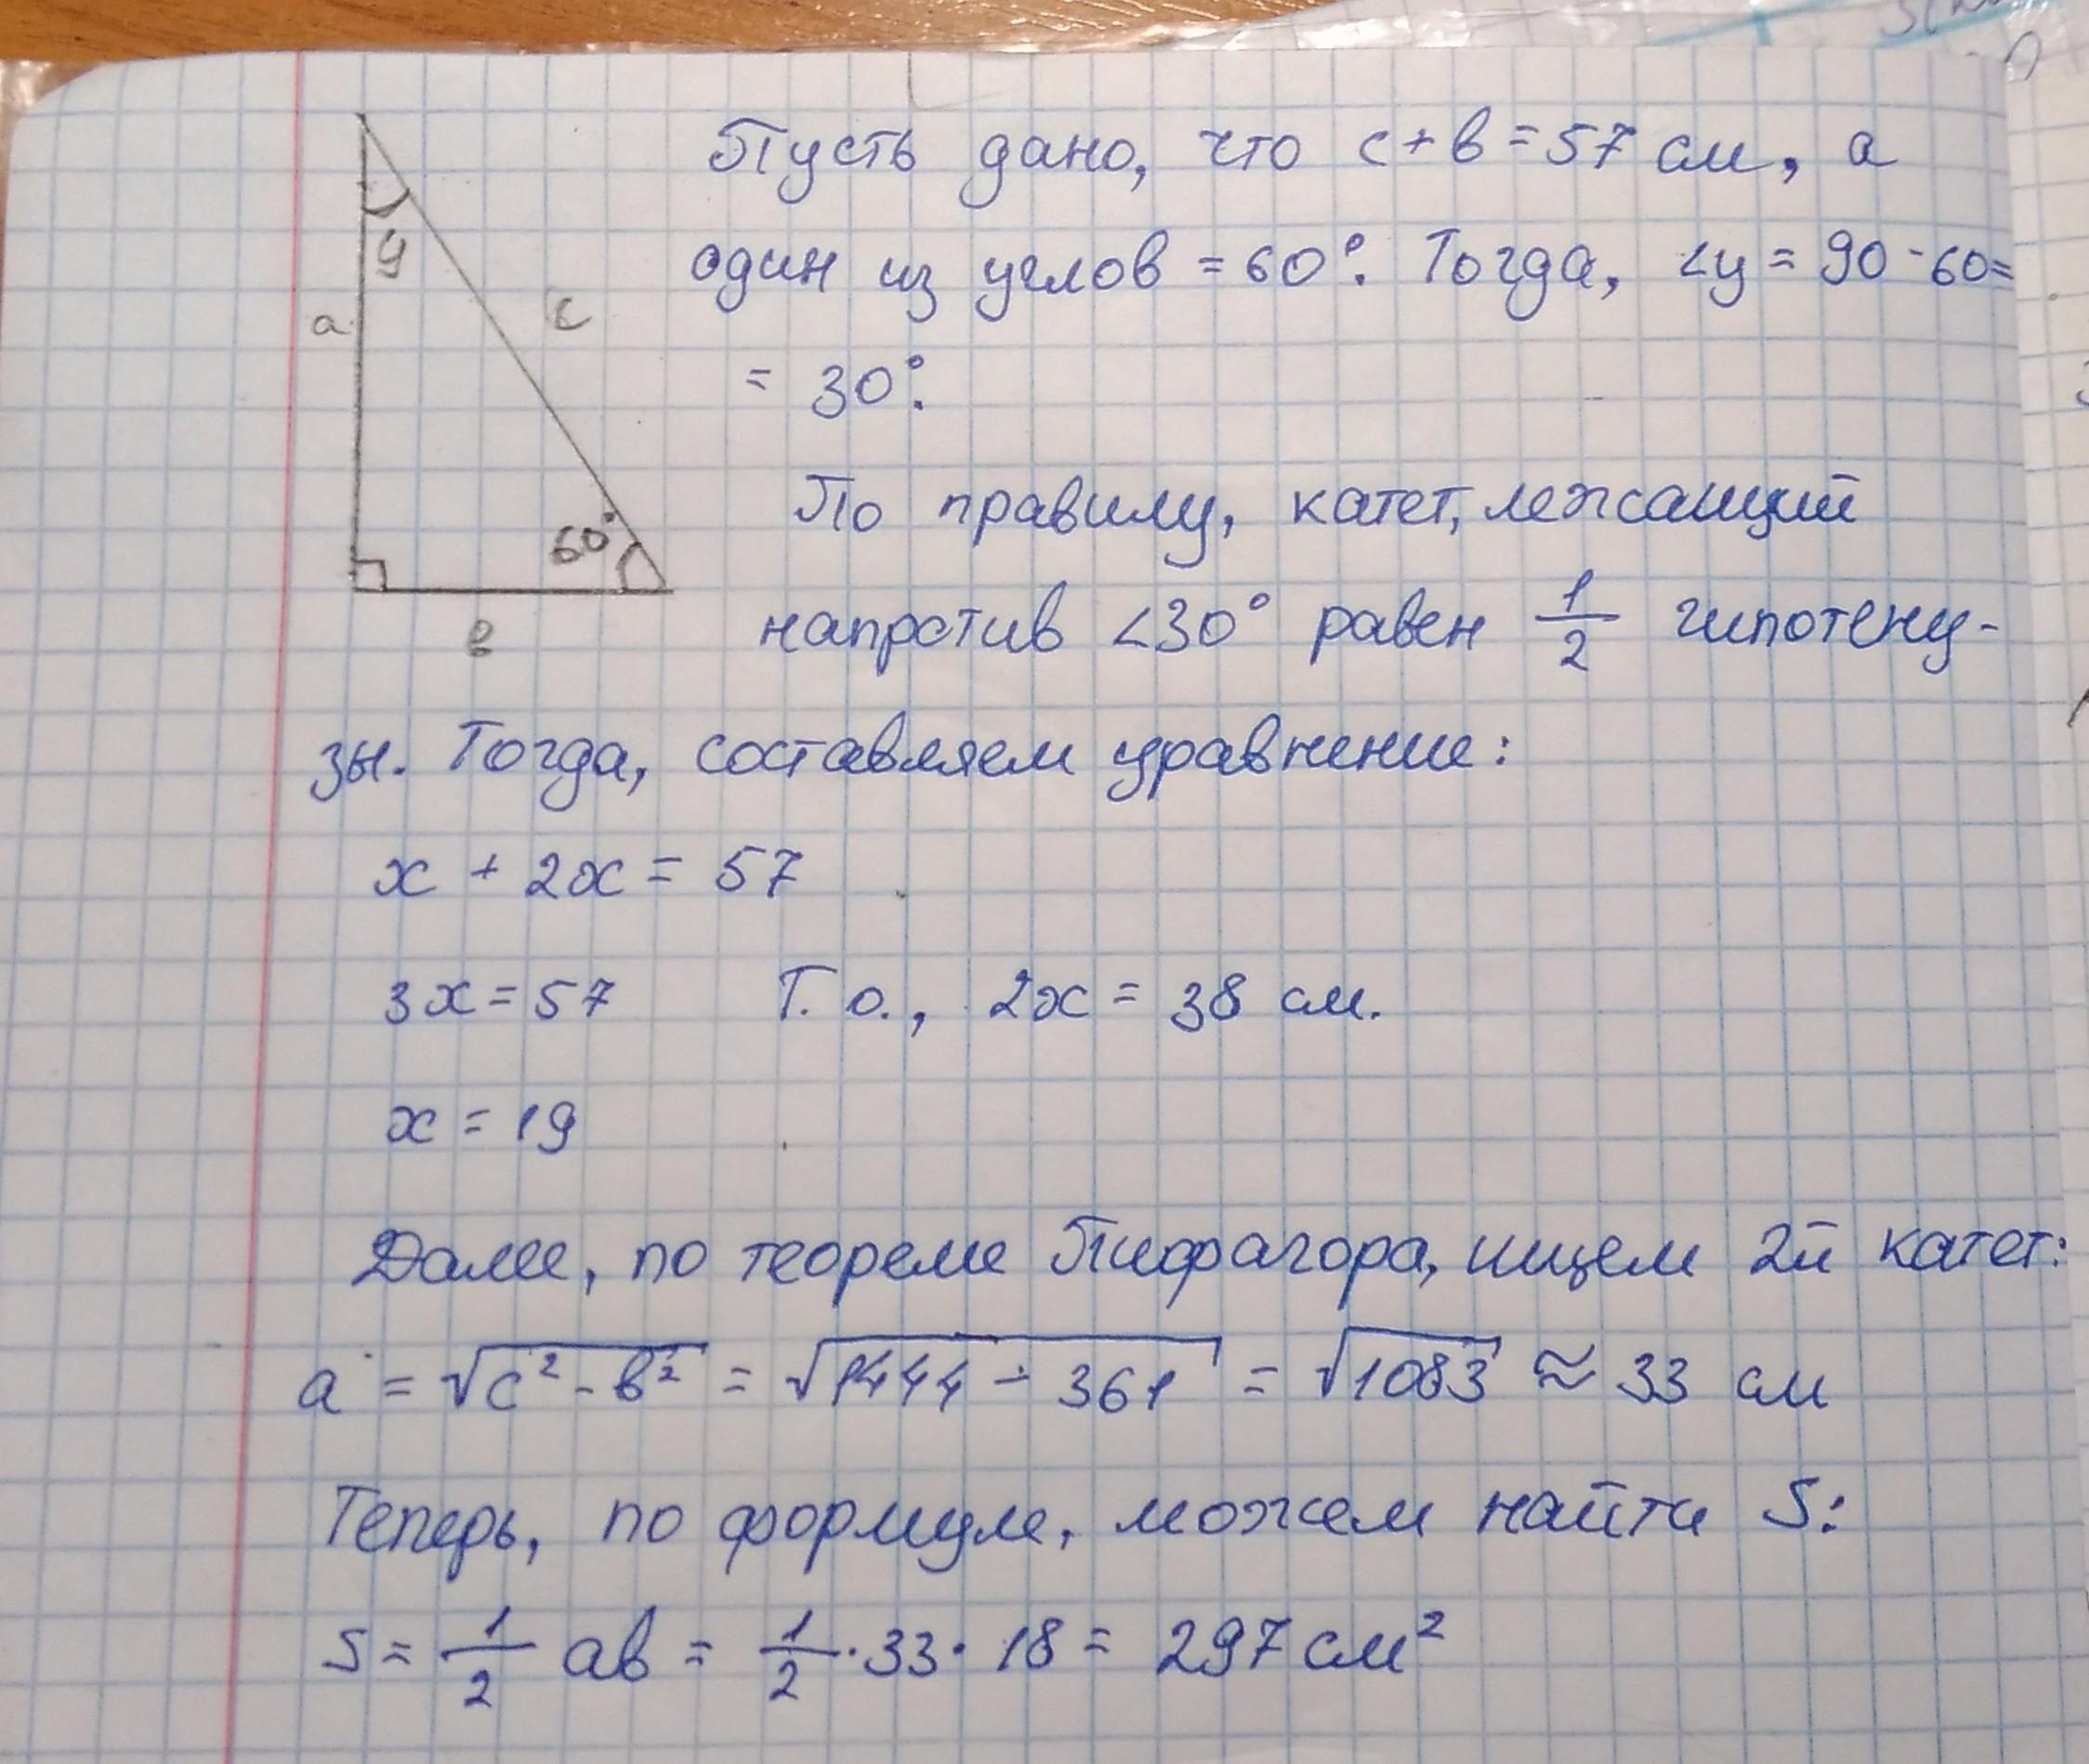 Пусть дано, что с+в=57 см, а
один из углов = 60°. Тогда, ∠y = 90 - 60=
= 30°.
По правилу, катет, лежащий
напротив ∠30° равен 1/2 гипотену-
зы. Тогда, составляем уравнение:
y
a
c
60°
в
x + 2x = 57
3x = 57 Т. о., 2x = 38 см.
x = 19
Далее, по теореме Пифагора, ищем 2й катет:
a = √c² - в² = √1444 - 361 = √1083 ≈ 33 см
Теперь, по формуле, можем найти S:
S = 1/2 ab = 1/2 · 33 · 18 = 297 см²